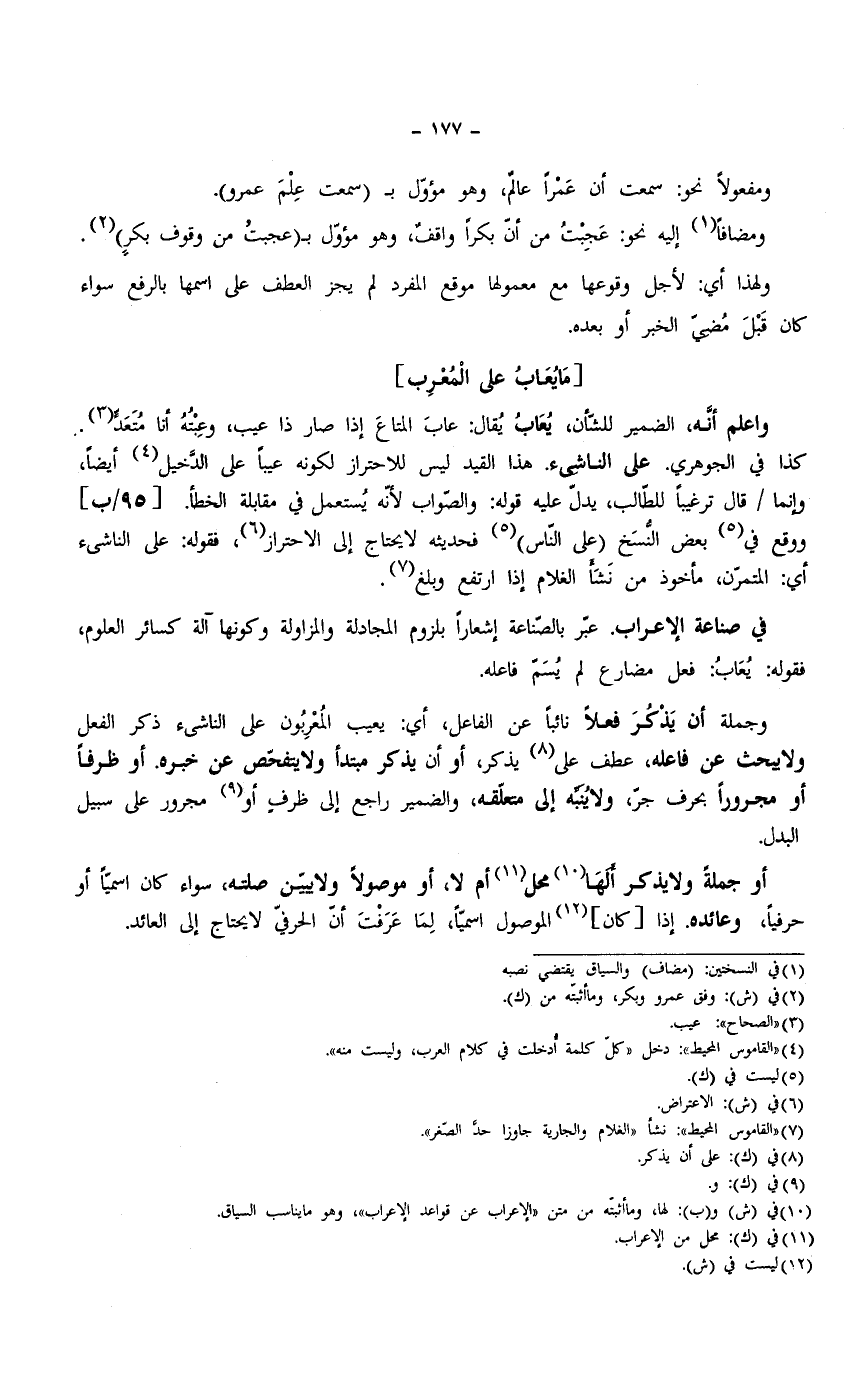 - ١٧٧ -
ومفعولاً نحو: سمعت أن عَمْراً عالمٌ، وهو مؤوّل بـ (سمعت عِلْمَ عمرو).
ومضافاً(١) إليه نحو: عَجِبْتُ من أنّ بكراً واقفٌ، وهو مؤوّل بـ(عجبتُ من وقوف بكرٍ)(٢).
ولهذا أي: لأجل وقوعها مع معمولها موقع المفرد لم يجز العطف على اسمها بالرفع سواء
كان قَبْلَ مُضيّ الخبر أو بعده.
[مَايُعَابُ على الْمُعْرِب]
واعلم أنَّه، الضمير للشّأن، يُعَابُ يُقال: عابَ المتاعَ إذا صار ذا عيب، وعِبْتُهُ أنا مُتَعَدٍّ(٣).
كذا في الجوهري. على الناشىء. هذا القيد ليس للاحتراز لكونه عيباً على الدَّخيل(٤) أيضاً،
وإنما / قال ترغيباً للطّالب، يدلّ عليه قوله: والصّواب لأنّه يُستعمل في مقابلة الخطأ. [٩٥/ب]
ووقع في(٥) بعض النُّسَخ (على النّاس)(٥) فحديثه لايحتاج إلى الاحتراز(٦)، فقوله: على الناشىء
أي: المتمرّن، مأخوذ من نَشَأَ الغلام إذا ارتفع وبلغ(٧).
في صناعة الإعراب. عبّر بالصّناعة إشعاراً بلزوم المجادلة والمزاولة وكونها آلة كسائر العلوم،
فقوله: يُعَابُ: فعل مضارع لم يُسَمّ فاعله.
وجملة أن يَذْكُرَ فعلاً نائباً عن الفاعل، أي: يعيب الْمُعْرِبُون على الناشىء ذكر الفعل
ولايبحث عن فاعله، عطف على(٨) يذكر، أو أن يذكر مبتدأ ولايتفحّص عن خبره. أو ظرفاً
أو مجروراً بحرف جرّ، ولايُنَبِّه إلى متعلّقه، والضمير راجع إلى ظرفٍ أو(٩) مجرور على سبيل
البدل.
أو جملةً ولايذكر أَلَهَا(١٠) محل(١١) أم لا، أو موصولاً ولايبيّن صلته، سواء كان اسميّاً أو
حرفياً، وعائده. إذا [كان](١٢) الموصول اسميّاً، لِمَا عَرَفْتَ أنّ الحرفيّ لايحتاج إلى العائد.
(١) في النسختين: (مضاف) والسياق يقتضي نصبه
(٢) في (ش): وفق عمرو وبكر، وماأثبتّه من (ك).
(٣) «الصحاح»: عيب.
(٤) «القاموس المحيط»: دخل «كلّ كلمة أُدخلت في كلام العرب، وليست منه».
(٥) ليست في (ك).
(٦) في (ش): الاعتراض.
(٧) «القاموس المحيط»: نشأ «الغلام والجارية جاوزا حدَّ الصّغر».
(٨) في (ك): على أن يذكر.
(٩) في (ك): و.
(١٠) في (ش) و(ب): لها، وماأثبتّه من متن «الإعراب عن قواعد الإعراب»، وهو مايناسب السياق.
(١١) في (ك): محل من الإعراب.
(١٢) ليست في (ش).